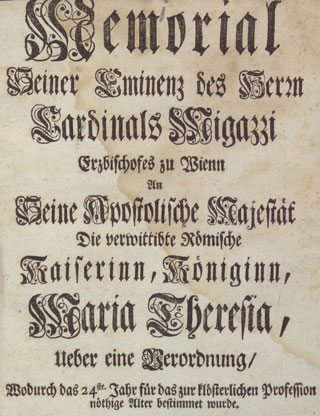 Memorial
Seiner Eminenz des Herrn
Cardinals Migazzi
Erzbischofes zu Wienn
An
Seine Apostolische Majestät
Die verwittibte Römische
Kaiserinn, Königinn,
Maria Theresia,
Ueber eine Verordnung/
Wodurch das 24ste. Jahr für das zur klösterlichen Profession
nöthige Alter bestimmet wurde.